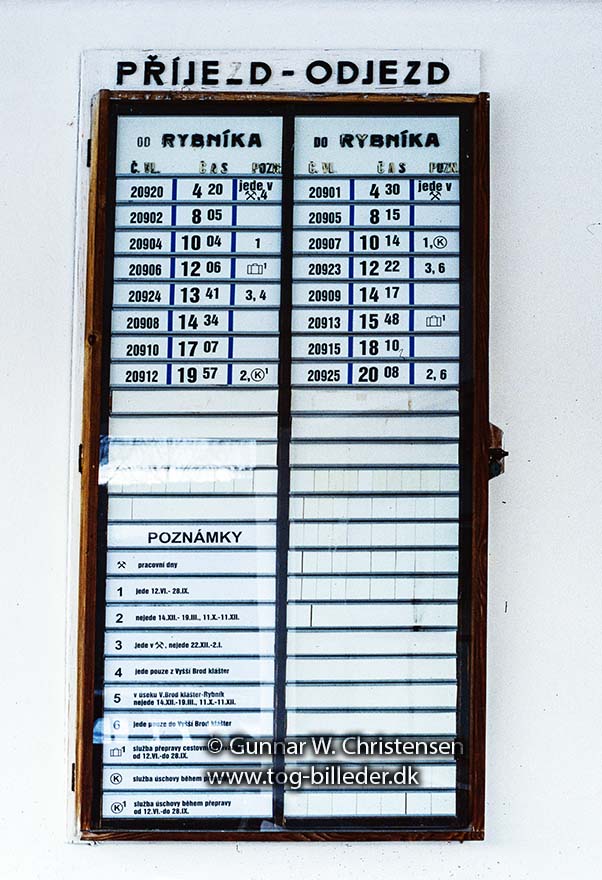 PŘÍJEZD - ODJEZD
OD RYBNÍKA
Č.VL. ČAS POZN.
20920 4 20 jede v ⚒,4
20902 8 05
20904 10 04 1
20906 12 06 1
20924 13 41 3, 4
20908 14 34
20910 17 07
20912 19 57 2,Ⓚ¹
DO RYBNÍKA
Č.VL. ČAS POZN.
20901 4 30 jede v ⚒
20905 8 15
20907 10 14 1,Ⓚ
20923 12 22 3, 6
20909 14 17
20913 15 48 1
20915 18 10
20925 20 08 2, 6
POZNÁMKY
⚒ pracovní dny
1 jede 12.VI.- 28.IX.
2 nejede 14.XII.- 19.III., 11.X.-11.XII.
3 jede v ⚒, nejede 22.XII.-2.I.
4 jede pouze z Vyšší Brod klášter
5 v úseku V.Brod klášter-Rybník
nejede 14.XII.-19.III., 11.X.-11.XII.
6 jede pouze do Vyšší Brod klášter
1 služba přepravy
od 12.VI.-do 28.IX.
Ⓚ služba úschovy během
Ⓚ¹ služba úschovy během přepravy
od 12.VI.-do 28.IX.
© Gunnar W. Christensen
www.tog-billeder.dk